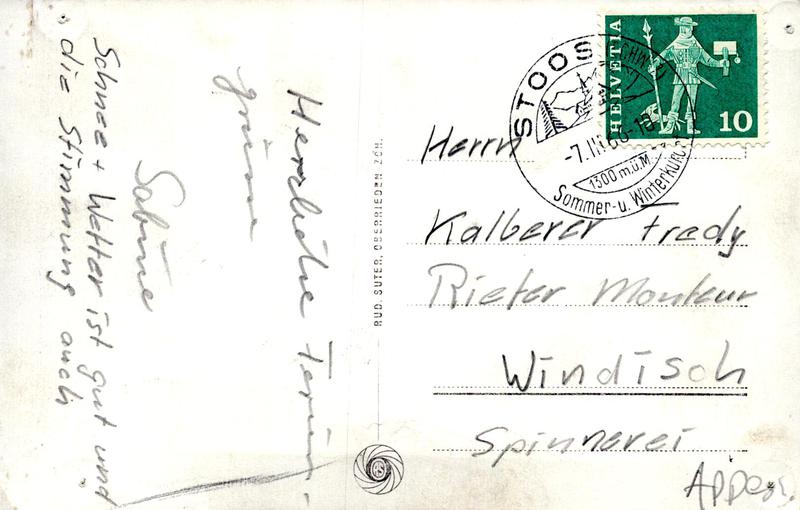 Herzliche Ferien-
grüsse
Sabine
Schnee + Wetter ist gut und
die Stimmung auch
RUD. SUTER, OBERRIEDEN-ZCH.
HELVETIA
10
STOOS
-7.III.66-10
1300 m.ü.M
Sommer-u. Winterkurort
Herrn
Kalberer Fredy
Rieter Monteur
Windisch
Spinnerei